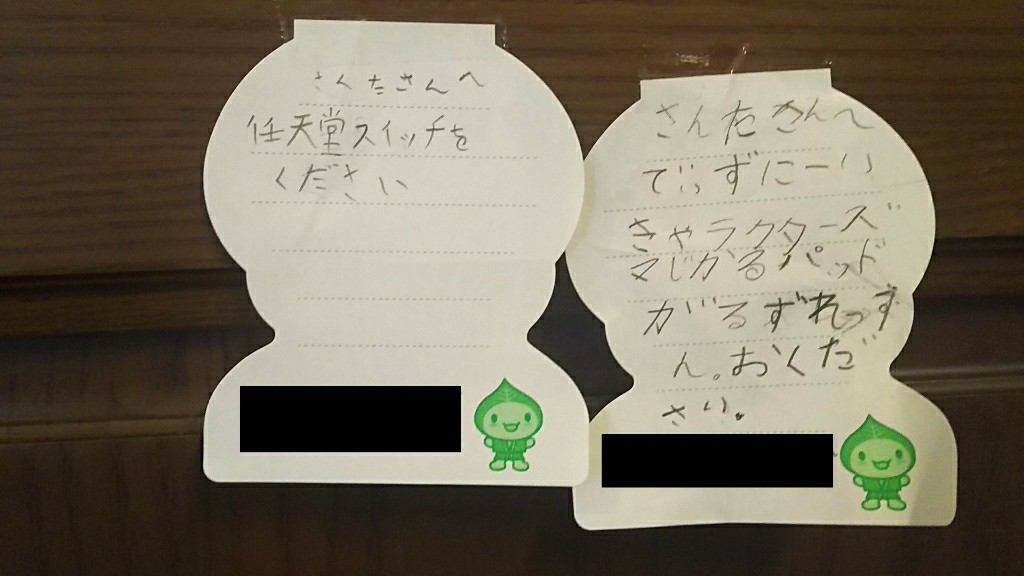 さんたさんへ
任天堂スイッチを
ください
さんたさんへ
でぃずにーり
きゃラクターズ
マじかるパッド
がるずれっす
ん。おくだ
さい。